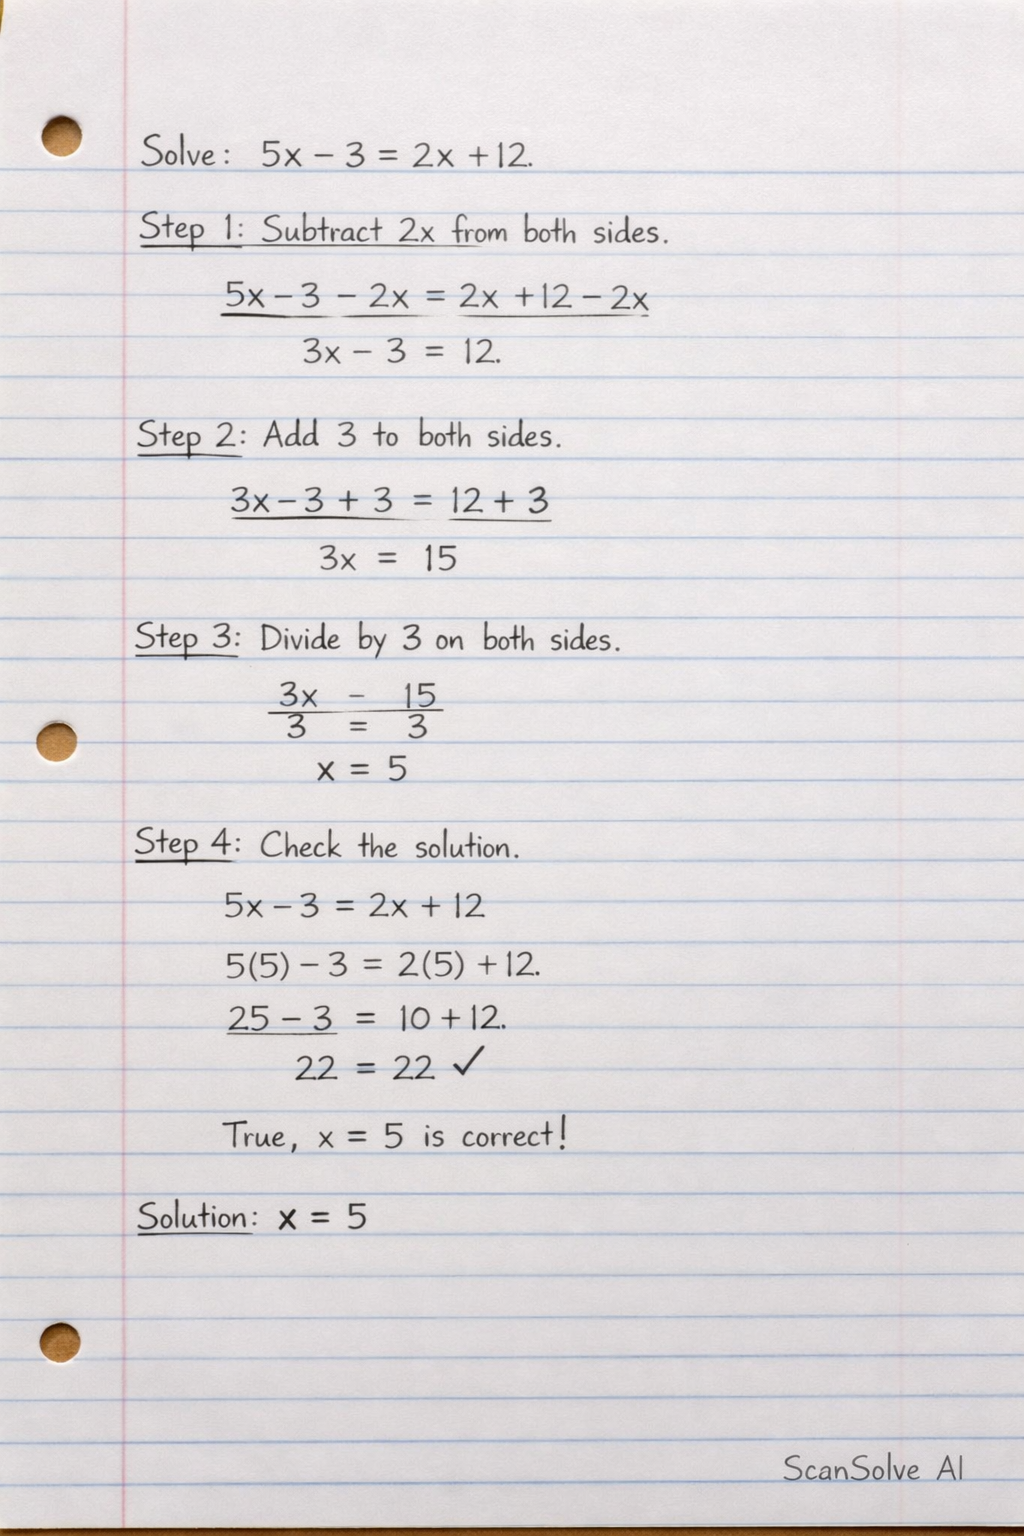 Solve: 5x - 3 = 2x + 12.
Step 1: Subtract 2x from both sides.
5x - 3 - 2x = 2x + 12 - 2x
3x - 3 = 12.
Step 2: Add 3 to both sides.
3x - 3 + 3 = 12 + 3
3x = 15
Step 3: Divide by 3 on both sides.
3x - 15
3 = 3
x = 5
Step 4: Check the solution.
5x - 3 = 2x + 12
5(5) - 3 = 2(5) + 12.
25 - 3 = 10 + 12.
22 = 22 ✓
True, x = 5 is correct!
Solution: x = 5
ScanSolve AI